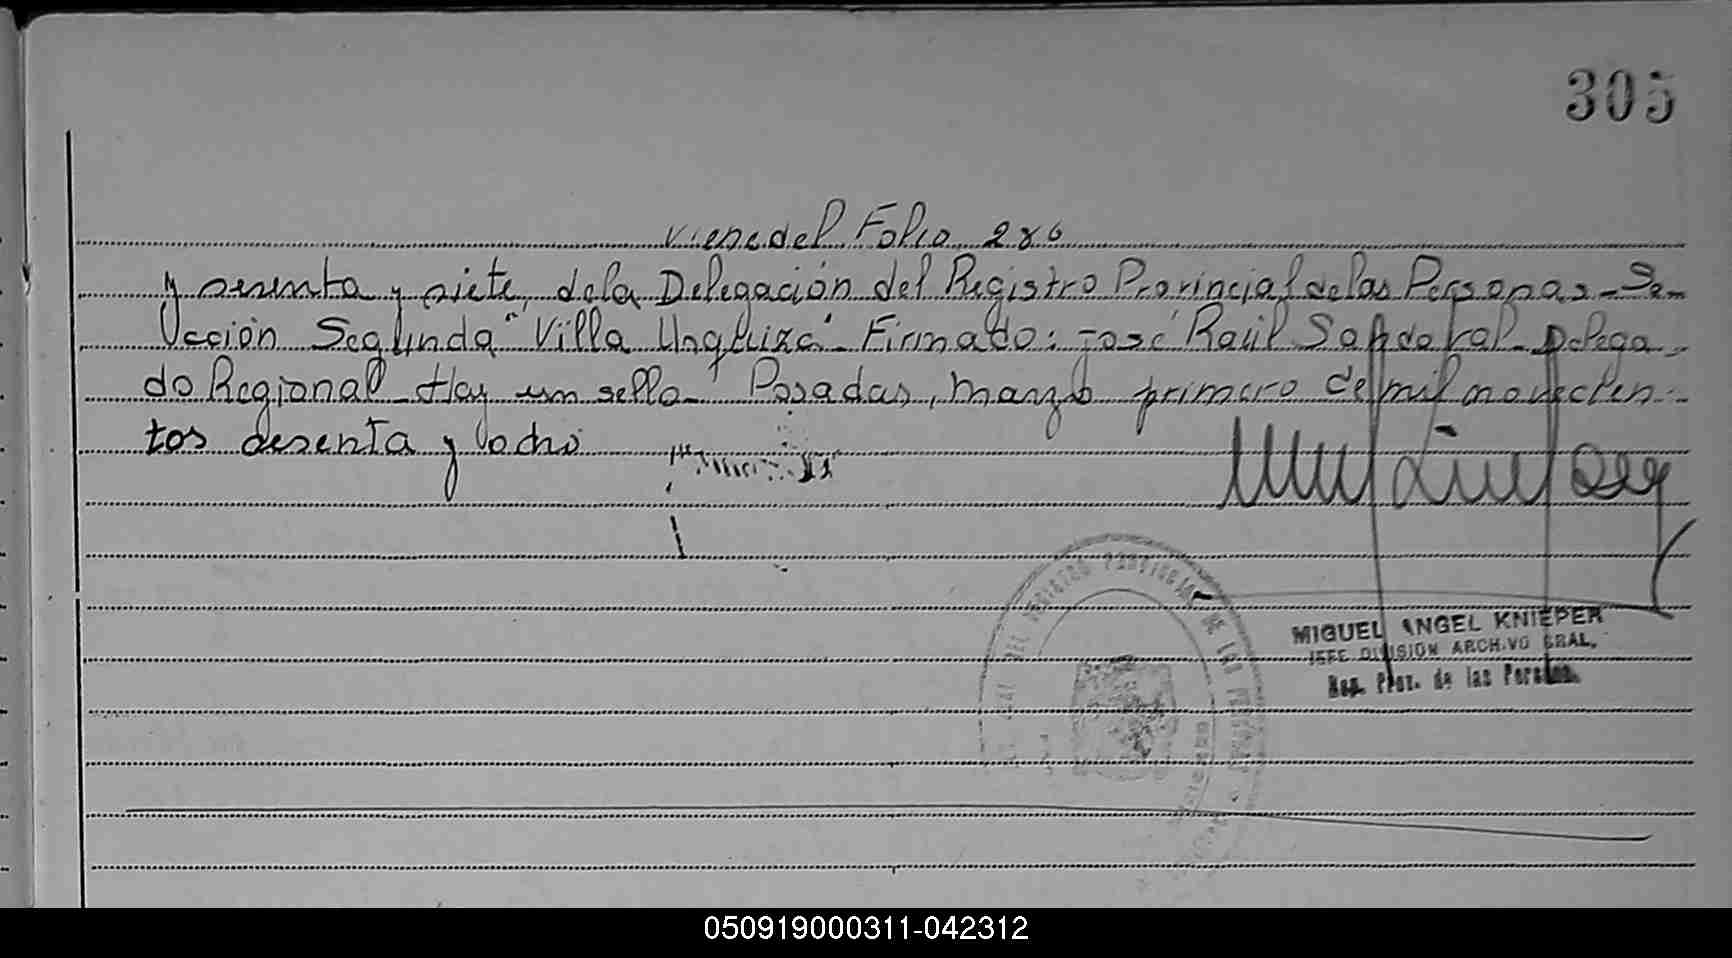 305
Viene del Folio 286
y sesenta y siete, de la Delegación del Registro Provincial de las Personas - Se-
cción Segunda "Villa Urquiza" - Firmado: José Raúl Sandoval - Delega-
do Regional - Hay un sello - Posadas, marzo primero de mil novecien-
tos sesenta y ocho
MIGUEL ANGEL KNIEPER
JEFE DIVISION ARCHIVO GRAL.
Reg. Prov. de las Personas
DEL REGISTRO PROVINCIAL DE LAS PERSONAS
050919000311-042312